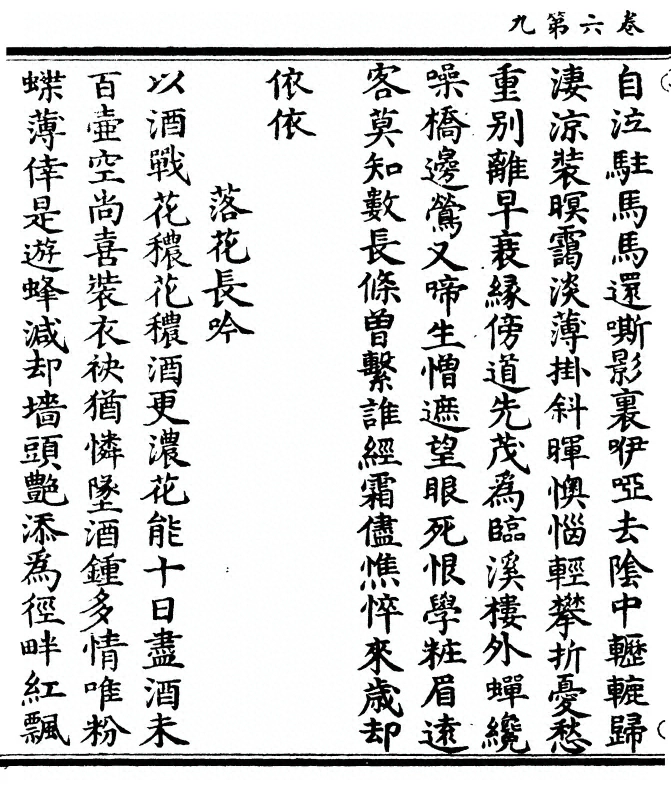 卷六第九
自泣駐馬馬還嘶影裏咿啞去陰中轣轆歸
淒涼裝暝靄淡薄掛斜暉懊惱輕攀折憂愁
重別離早衰緣傍道先茂為臨溪樓外蟬纔
噪橋邊鶯又啼生憎遮望眼死恨學粧眉遠
客莫知數長條曾繫誰經霜儘憔悴來歲却
依依
落花長吟
以酒戰花穠花穠酒更濃花能十日盡酒未
百壺空尚喜裝衣袂猶憐墜酒鍾多情唯粉
蝶薄倖是遊蜂減却墻頭艷添為徑畔紅飄